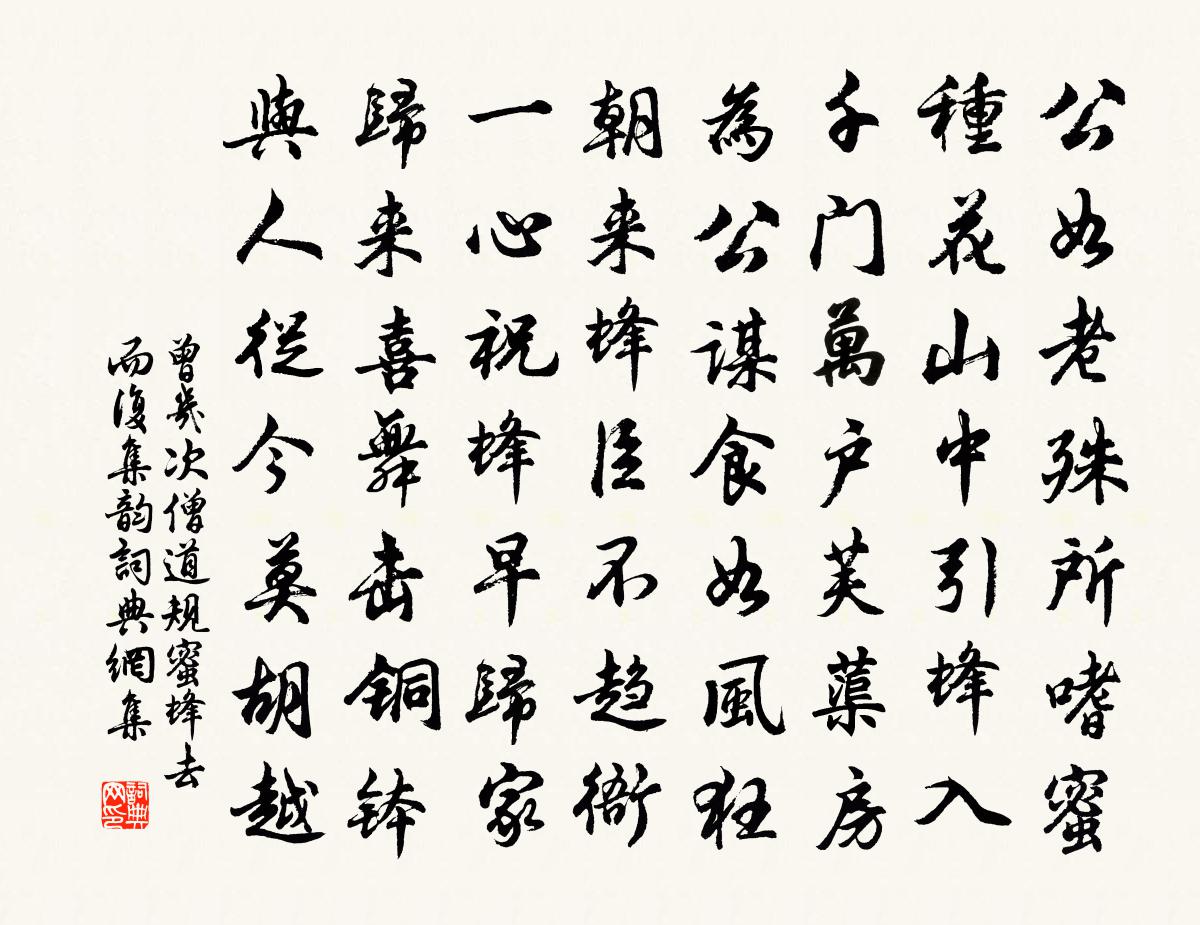 公如老殊所嗜蜜
種花山中引蜂入
千門萬户芙蕖房
為公謀食如風狂
朝来蜂臣不趋衙
一心祝蜂早歸家
歸来喜舞击铜钵
與人從今莫胡越
曾幾次僧道規蜜蜂去
而復集韵詞典網集
詞典网印